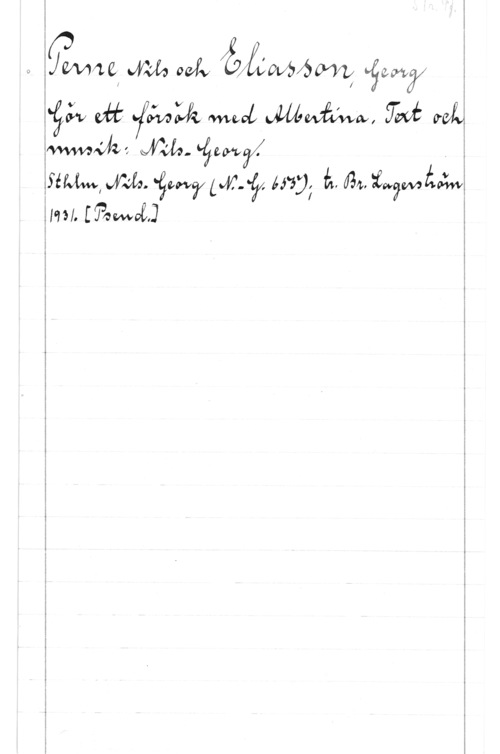 Perne, Nils och Eliasson, Georg
Gör ett försök med Albertina. Text och
musik: Nils-Georg.
Sthlm, Nils-Georg (N.-G. 655); tr. Br. Lagerström
1931. [Pseud.]